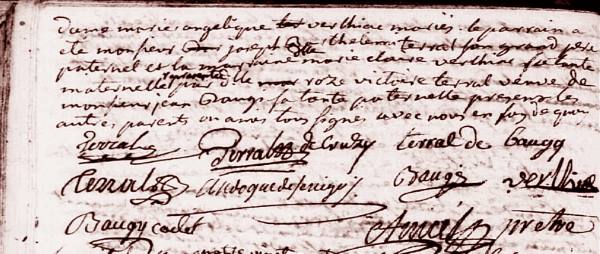 dame marie angelique verthiac mariés. le parrain a
eté monsieur joseph Barthelemi terral son grand pere
paternel et la marraine marie claire verthiac sa tante
maternelle representée par dlle roze victoire terral veuve de
monsieur jean Baugy sa tante paternelle presents les
autres parents ou amis tous signes avec nous en foy de quoy
Terral Terral de Cruzy terral de baugy
Terral Baugy verthiac
Baugy cadet prêtre